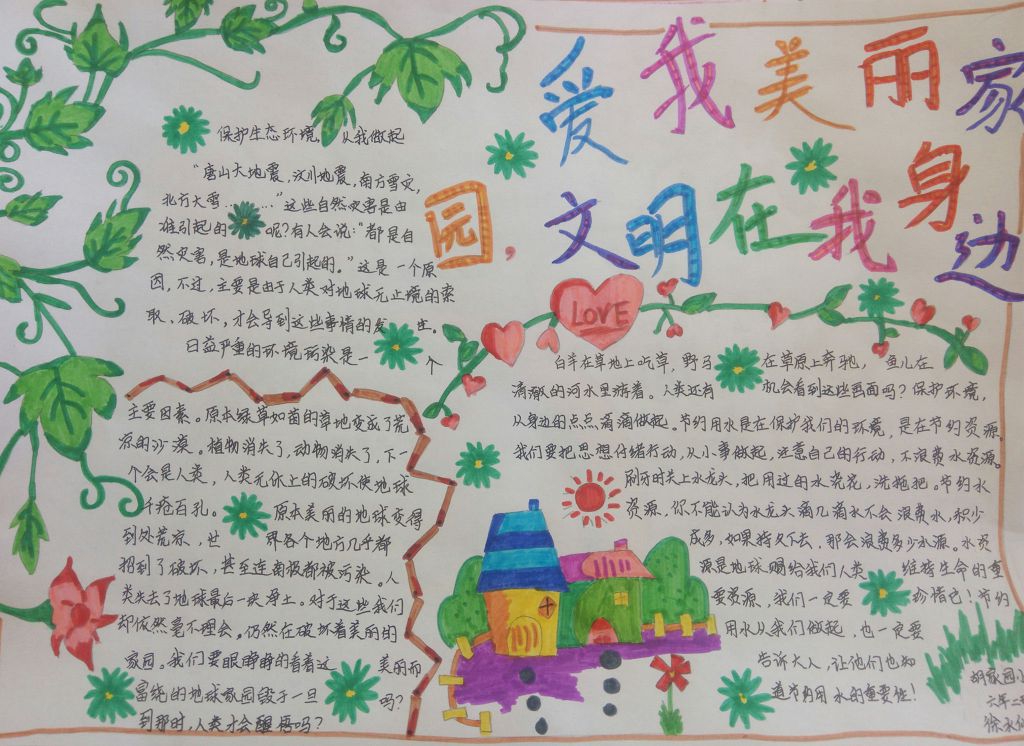 爱我美丽家
园，文明在我身边
保护生态环境，从我做起
“唐山大地震，汶川地震，南方雪灾，
北方大雪………”这些自然灾害是由
谁引起的呢？有人会说：“都是自
然灾害，是地球自己引起的。”这是一个原
因，不过，主要是由于人类对地球无止境的索
取、破坏，才会导到这些事情的发生。
日益严重的环境污染是一个
主要因素。原本绿草如茵的草地变成了荒
凉的沙漠。植物消失了，动物消失了，下一
个会是人类，人类无休止的破坏使地球
千疮百孔。原本美丽的地球变得
到处荒凉，世界各个地方几乎都
招到了破坏，甚至连南极都被污染。人
类失去了地球最后一块净土。对于这些我们
却依然毫不理会。仍然在破坏着美丽的
家园。我们要眼睁睁的看着这美丽而
富饶的地球家园毁于一旦吗？
到那时，人类才会醒悟吗？
LOVE
白羊在草地上吃草，野马在草原上奔驰，鱼儿在
清澈的河水里游着。人类还有机会看到这些画面吗？保护环境，
从身边的点点滴滴做起。节约用水是在保护我们的环境，是在节约资源。
我们要把思想付诸行动，从小事做起，注意自己的行动，不浪费水资源。
刷牙时关上水龙头，把用过的水浇花，洗拖把。节约水
资源，你不能认为水龙头滴几滴水不会浪费水，积少
成多，如果持久下去，那会浪费多少水源。水资
源是地球赐给我们人类维持生命的重
要资源，我们一定要珍惜它！节约
用水从我们做起，也一定要
告诉大人，让他们也知
道节约用水的重要性！
胡家园小
六年二
徐永